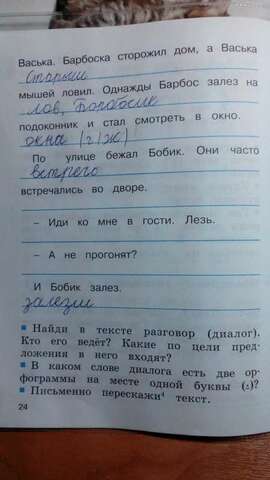 Васька. Барбоска сторожил дом, а Васька
Старый
мышей ловил. Однажды Барбос залез на
лов, Барбосик
подоконник и стал смотреть в окно.
окна (г/ж)
По улице бежал Бобик. Они часто
встрего
встречались во дворе.
– Иди ко мне в гости. Лезь.
– А не прогонят?
И Бобик залез.
залезш
Найди в тексте разговор (диалог).
Кто его ведёт? Какие по цели пред-
ложения в него входят?
В каком слове диалога есть две ор-
фограммы на месте одной буквы (:)?
Письменно перескажи⁴ текст.
24